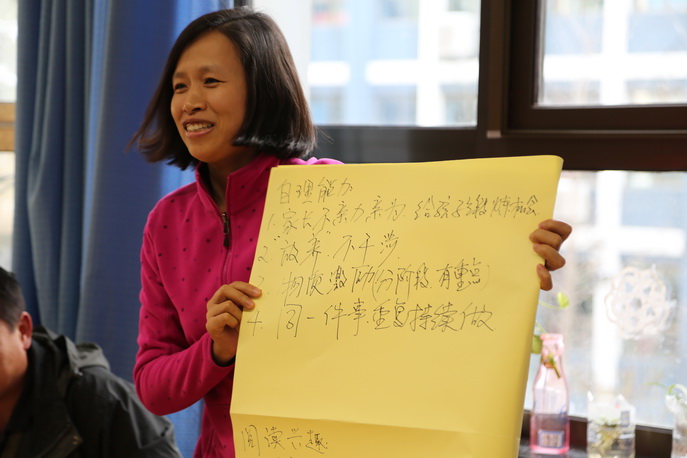 自理能力
1. 家长不亲力亲为. 给孩子锻炼机会
2. 不干涉
3. 激励(分阶段有重点)
4. 同一件事重复持续做
阅读兴趣